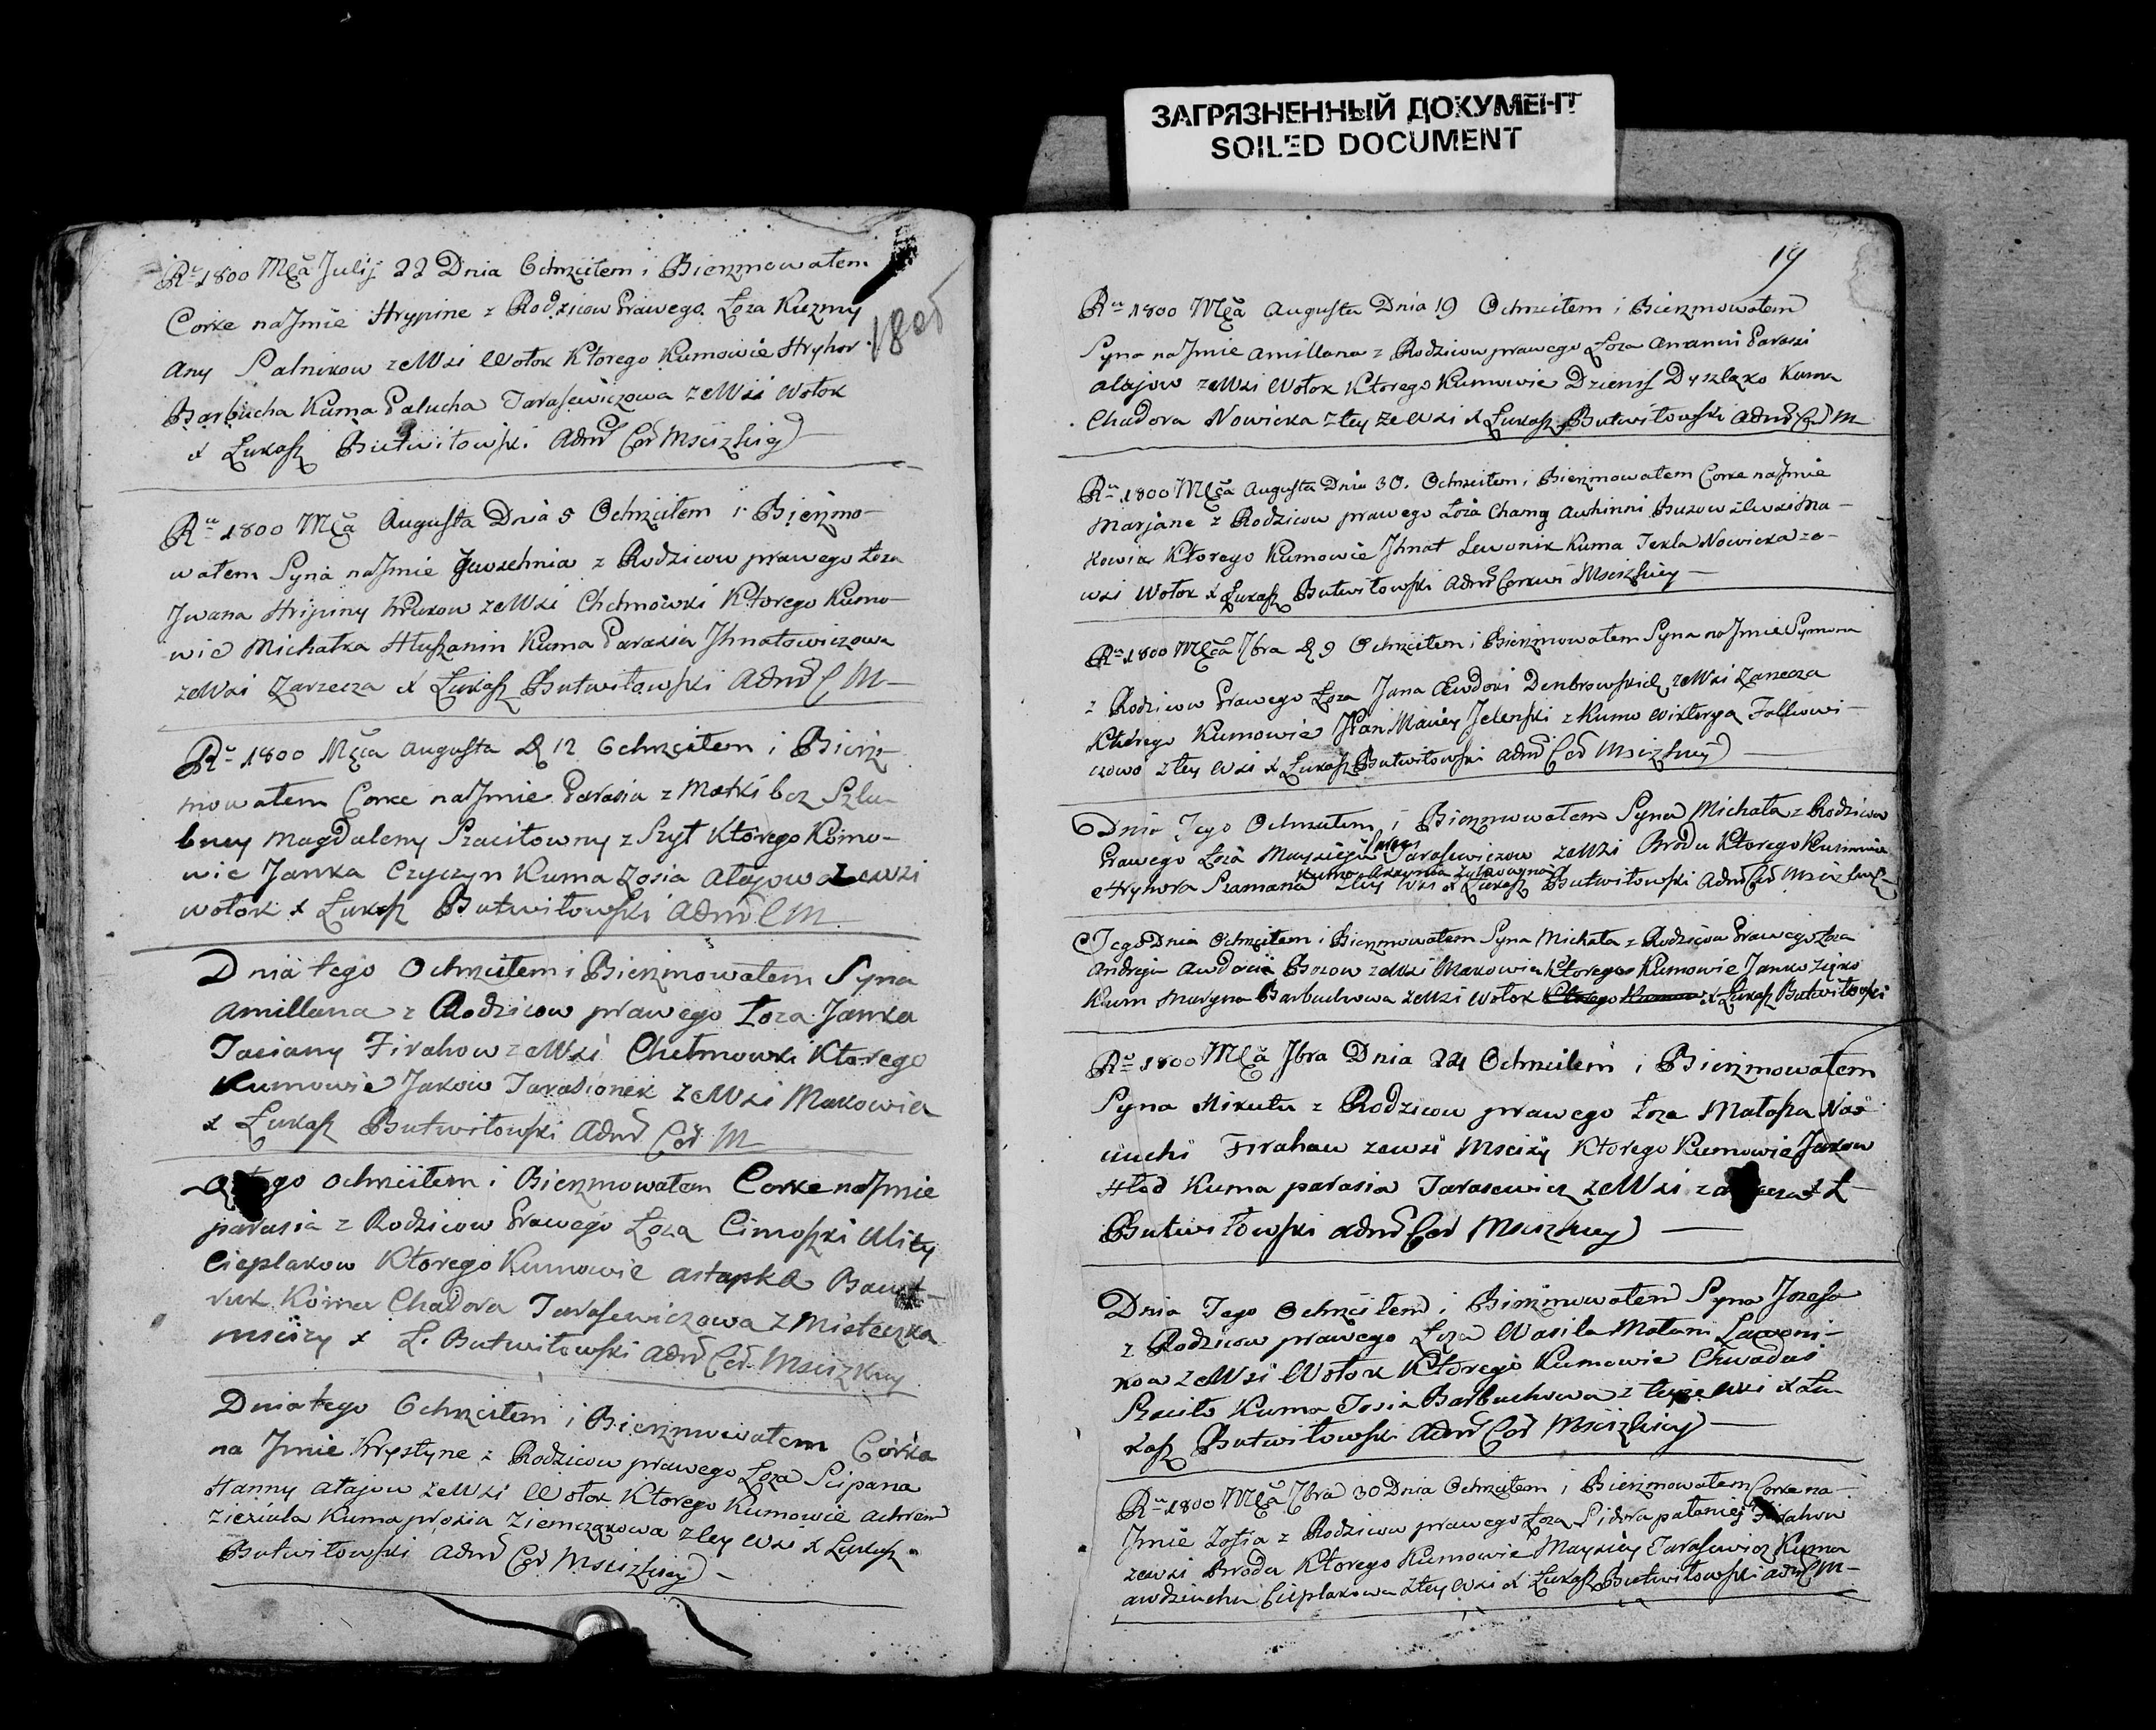 ЗАГРЯЗНЕННЫЙ ДОКУМЕНТ
SOILED DOCUMENT
Ru 1800 Mca Julij 22 Dnia Ochrzciłem i Bierzmowałem
Corke na Jmie Hrypine z Rodzicow Prawego Łoza Kuzmy
Any Salnikow ze Wsi Wołok Ktorego Kumowie Hryhor
Barbucha Kuma Palucha Tarasewiczowa ze Wsi Wołok
x Łukasz Butwiłowski Admr Cer Mscizkiey
1800
Ru 1800 Mca Augusta Dnia 5 Ochrzciłem i Bierzmo-
wałem Syna na Jmie z Rodzicow prawego Łoza
Jwana Hripiny Krukow ze Wsi Chełmowki Ktorego Kumo-
wie Michałka Hluszanin Kuma Parasia Jhnatowiczowa
ze Wsi Zarzecza x Łukasz Butwiłowski Admr C M
Ru 1800 Mca Augusta D 12 Ochrzciłem i Bierz-
mowałem Corke na Jmie Parasia z Matki bez Szlu-
bney Magdaleny Szaciłowny z Szył Ktorego Kumo-
wie Janka Czyczyn Kuma Zosia Ałajowa ze wsi
Wołok x Łukasz Butwiłowski Admr C M
Dnia tego Ochrzciłem i Bierzmowałem Syna
Amillana z Rodzicow prawego Łoza Janka
Taciany Firahow ze Wsi Chełmowki Ktorego
Kumowie Jakow Tarasionek ze Wsi Makowia
x Łukasz Butwiłowski Admr Cer M
Ochrzciłem i Bierzmowałem Corke na Jmie
parasia z Rodzicow Prawego Łoza Cimoszki Ulity
Cieplakow Ktorego Kumowie Astapka
Kuma Chadora Tarasewiczowa z Miasteczka
Mscizy x L. Butwiłowski Admr Cer. Mscizkiey
Dnia tego Ochrzciłem i Bierzmowałem Corka
na Jmie Krystyne z Rodzicow prawego Łoza Scipana
Hanny Ałajow ze Wsi Wołok Ktorego Kumowie Achrem
Zieziula Kuma prosia Ziemczakowa z tey Wsi x Łukasz
Butwiłowski Admr Cer Mscizkiey
19
Ru 1800 Mca Augusta Dnia 19 Ochrzciłem i Bierzmowałem
Syna na Jmie Amillana z Rodzicow prawego Łoza Ananni Paraski
Ałajow ze Wsi Wołok Ktorego Kumowie Dzienis Dyszlako Kuma
Chadora Nowicka z tey ze Wsi x Łukasz Butwiłowski Admr Cer M
Ru 1800 Mca Augusta Dnia 30. Ochrzciłem i Bierzmowałem Corke na Jmie
Marjane z Rodzicow prawego Łoza Awhinni Busow ze wsi Ma-
kowia Ktorego Kumowie Jhnat Lewonik Kuma Tekla Nowicka ze
wsi Wołok x Łukasz Butwiłowski Admr Cerkwi Mscizkiey
Ru 1800 Mca 7bra D 9 Ochrzciłem i Bierzmowałem Syna na Jmie Symona
z Rodzicow Prawego Łoza Jana Ewdoki Dembrowskich ze Wsi Zarzecza
Ktorego Kumowie Pan Maciey Jelenski z Kumo Wiktorya
z tey Wsi x Łukasz Butwiłowski Admr Cer Mscizkiey
Dnia Tego Ochrzciłem i Bierzmowałem Syna Michała z Rodzicow
Prawego Łoza Mayzieja Tarasewiczow ze Wsi Brodu Ktorego Kumowie
Hryhora Szamana z tey Wsi x Łukasz Butwiłowski Admr Cer Mscizkiey
Tego Dnia Ochrzciłem i Bierzmowałem Syna Michała z Rodzicow Prawego Łoza
Andreja Awdocii Bosow ze Wsi Makowia Ktorego Kumowie Janko
Kum Maryna Barbuchowa ze Wsi Wołok Ktorego Kumowie x Łukasz Butwiłowski
Ru 1800 Mca 7bra Dnia 24 Ochrzciłem i Bierzmowałem
Syna Mikutu z Rodzicow prawego Łoza Matasza Nas-
ciuchi Firahow ze wsi Mscizy Ktorego Kumowie Jakow
Hład Kuma parasia Tarasewicz ze Wsi x Ł
Butwiłowski Admr Cer Mscizkiey
Dnia Tego Ochrzciłem i Bierzmowałem Syna Jozefa
z Rodzicow prawego Łoza Wasila Matroni Lawoni-
kow ze Wsi Wołok Ktorego Kumowie
Szaciło Kuma Tosia Barbuchowa z teyze wsi x Łu-
kasz Butwiłowski Admr Cer Mscizkiey
Ru 1800 Mca 7bra 30 Dnia Ochrzciłem i Bierzmowałem Corke na
Jmie Zofia z Rodzicow prawego Łoza Sidora Firahow
ze wsi Broda Ktorego Kumowie Mayziey Tarasewicz Kuma
Awdziucha Cieplakowa z tey Wsi x Łukasz Butwiłowski Admr C M